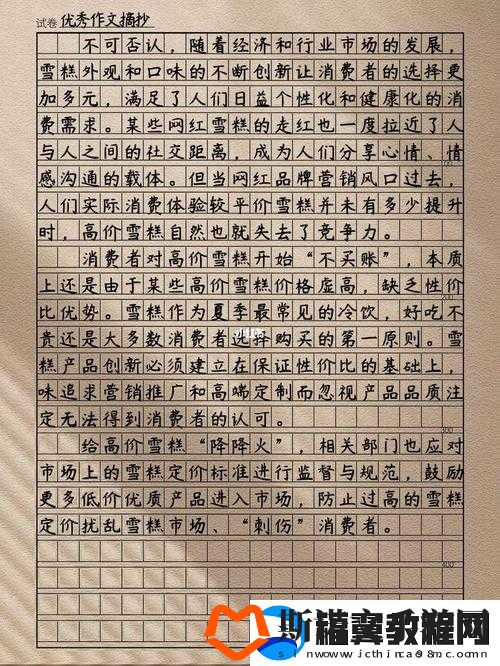 试卷 优秀作文摘抄
不可否认，随着经济和行业市场的发展，
雪糕外观和口味的不断创新让消费者的选择更
加多元，满足了人们日益个性化和健康化的消
费需求。某些网红雪糕的走红也一度拉近了人
与人之间的社交距离，成为人们分享心情、情
感沟通的载体。但当网红品牌营销风口过去，
人们实际消费体验较平价雪糕并未有多少提升
时，高价雪糕自然也就失去了竞争力。
消费者对高价雪糕开始“不买账”，本质
上还是由于某些高价雪糕价格虚高，缺乏性价
比优势。雪糕作为夏季最常见的冷饮，好吃不
贵还是大多数消费者选择购买的第一原则。雪
糕产品创新必须建立在保证性价比的基础上，
味追求营销推广和高端定制而忽视产品品质注
定无法得到消费者的认可。
300
给高价雪糕“降降火”，相关部门也应对
市场上的雪糕定价标准进行监督与规范，鼓励
更多低价优质产品进入市场，防止过高的雪糕
定价扰乱雪糕市场、“刺伤”消费者。
400